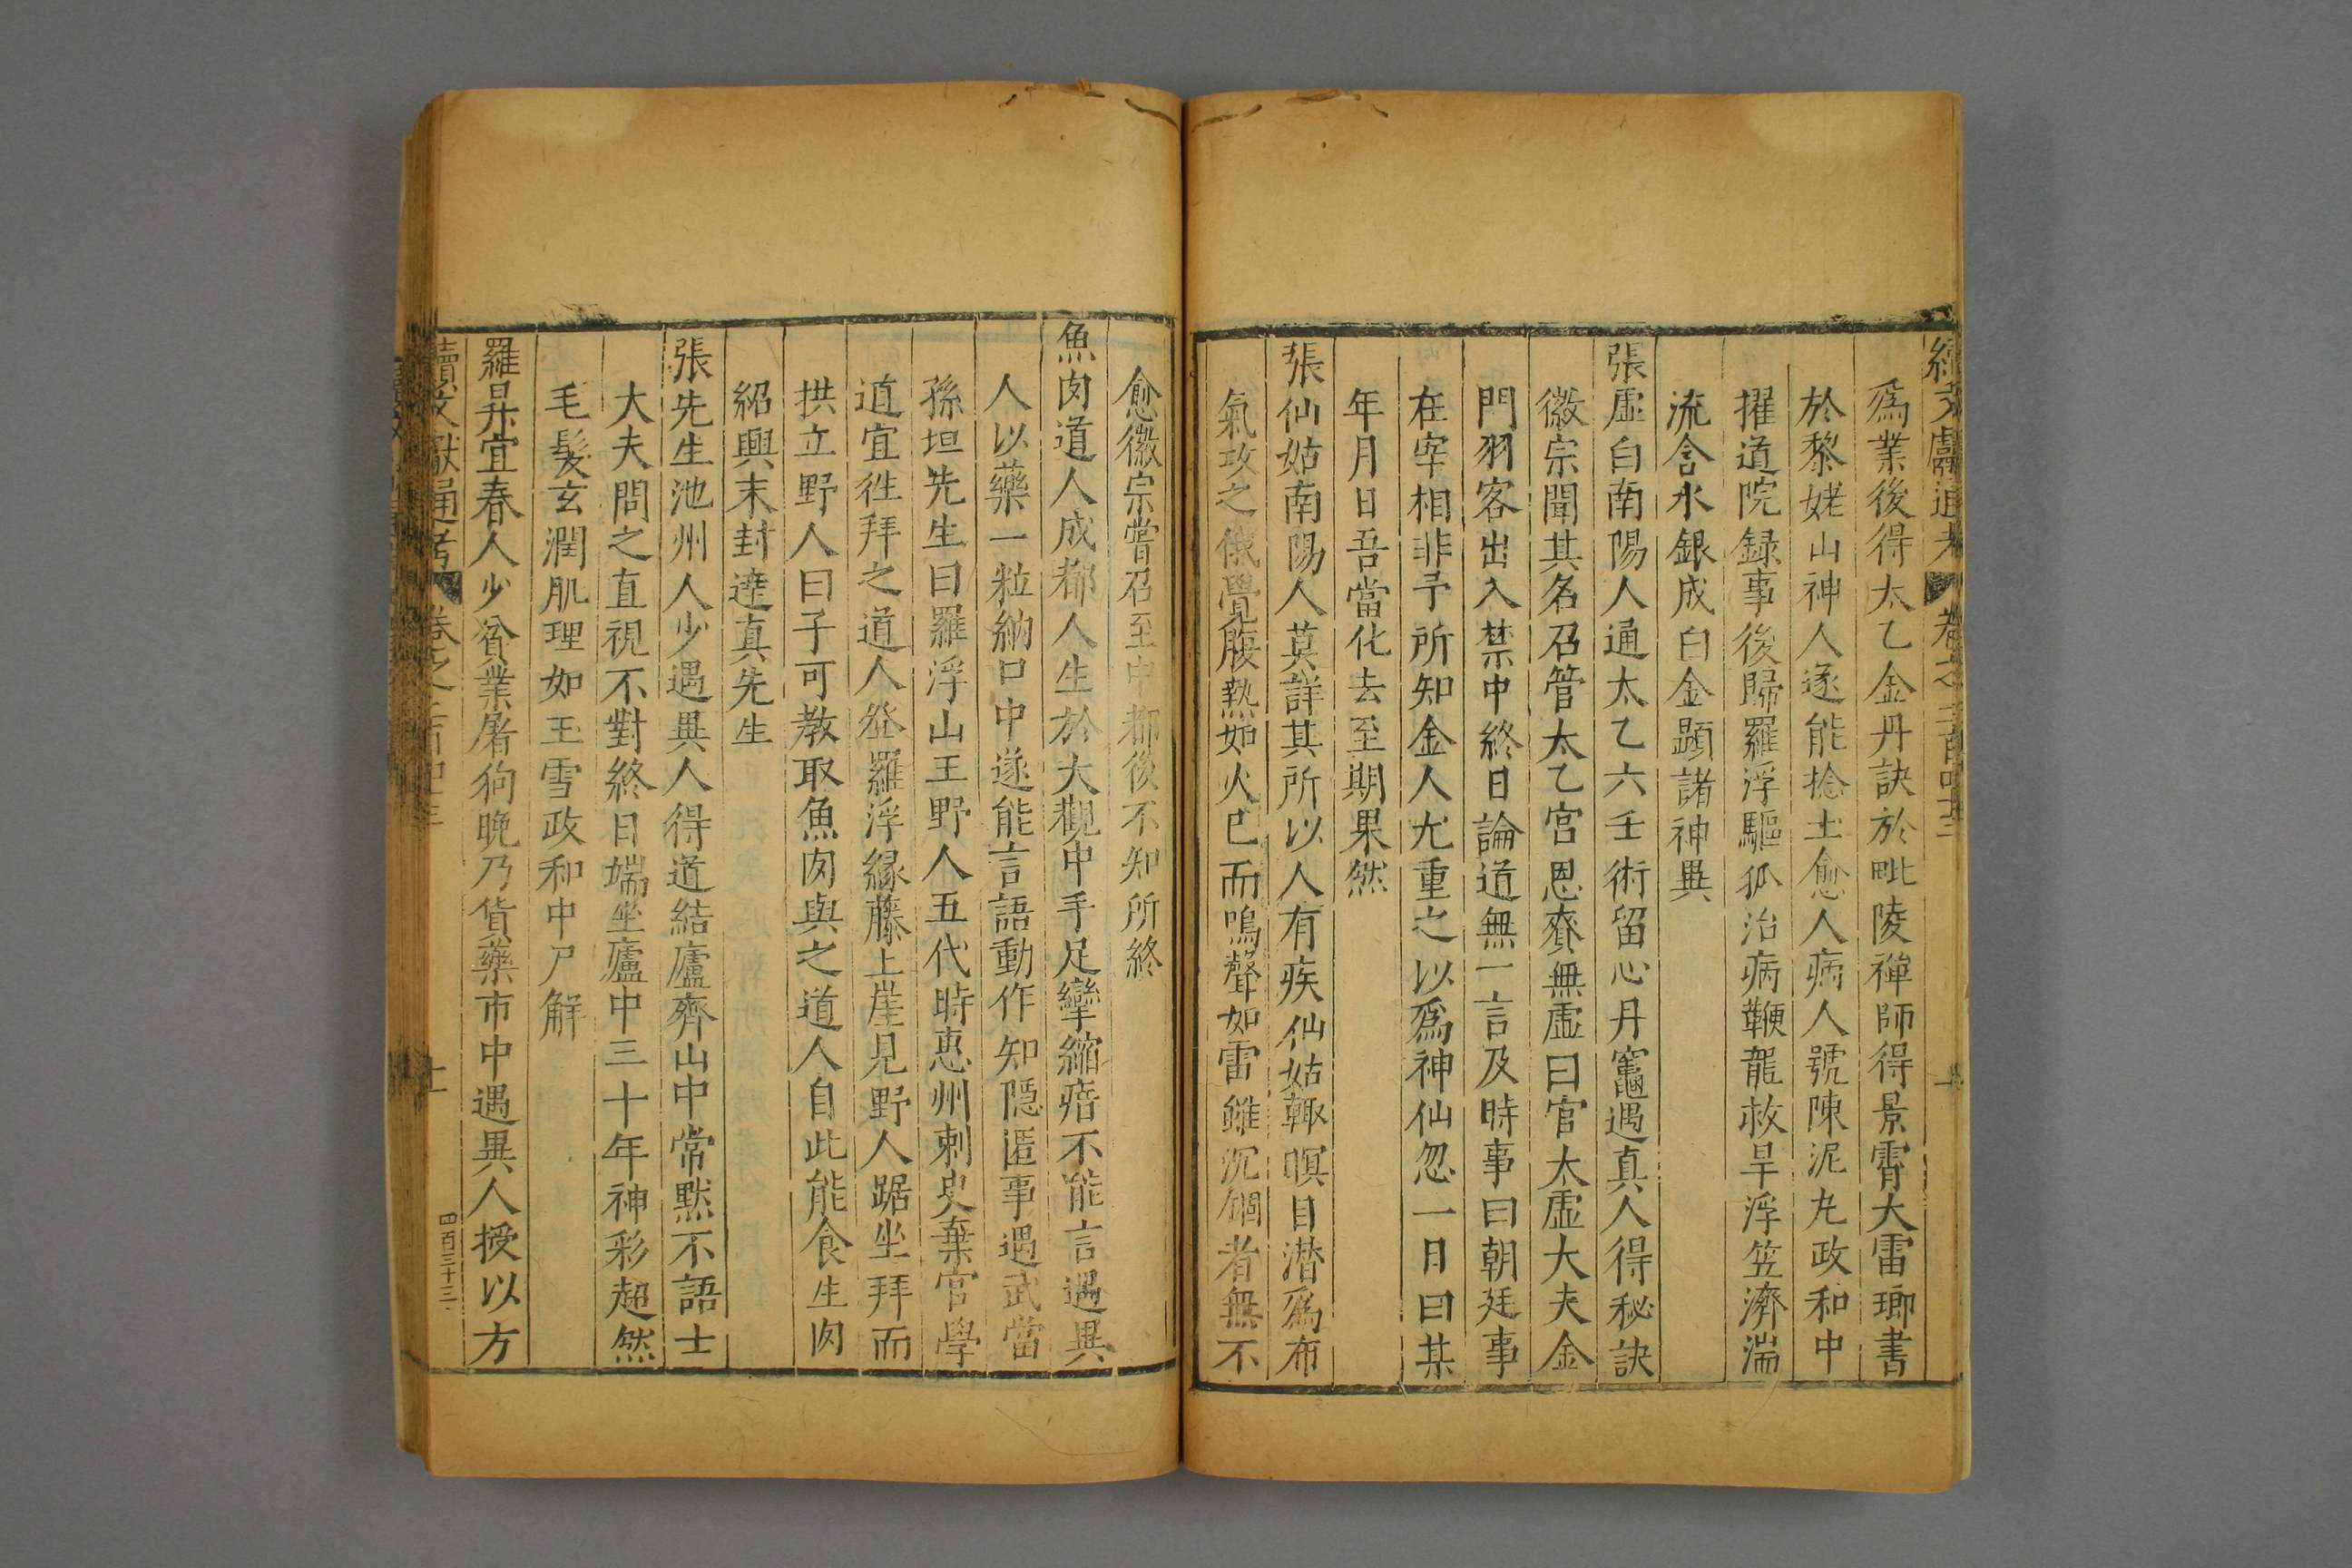 續文獻通考 卷之二百四十三
爲業後得太乙金丹訣於毗陵禪師得景霄大雷瑯書
於黎姥山神人遂能捻土愈人病人號陳泥丸政和中
擢道院録事後歸羅浮驅狐治病鞭龍救旱浮笠濟湍
流含水銀成白金顕諸神異
張虛白南陽人通太乙六壬術留心丹竈遇真人得秘訣
徽宗聞其名召管太乙宮恩賚無虛曰官太虛大夫金
門羽客出入禁中終日論道無一言及時事曰朝廷事
在宰相非予所知金人尤重之以爲神仙忽一日曰某
年月日吾當化去至期果然
張仙姑南陽人莫詳其所以人有疾仙姑輙暝目潜爲布
氣攻之俄覺腹熱如火已而鳴聲如雷雖沉痼者無不
愈徽宗嘗召至中都後不知所終
魚肉道人成都人生於大觀中手足攣縮瘖不能言遇異
人以藥一粒納口中遂能言語動作知隱匿事遇武當
孫坦先生曰羅浮山王野人五代時惠州刺史棄官學
道宜徃拜之道人登羅浮緣藤上崖見野人踞坐拜而
拱立野人曰子可教取魚肉與之道人自此能食生肉
紹興末封達真先生
張先生池州人少遇異人得道結廬齊山中常默不語士
大夫問之直視不對終日端坐廬中三十年神彩超然
毛髮玄潤肌理如玉雪政和中尸解
羅昇宜春人少貧業屠狗晚乃貨藥市中遇異人授以方
續文獻通考 卷之二百四十三 十 四百三十三